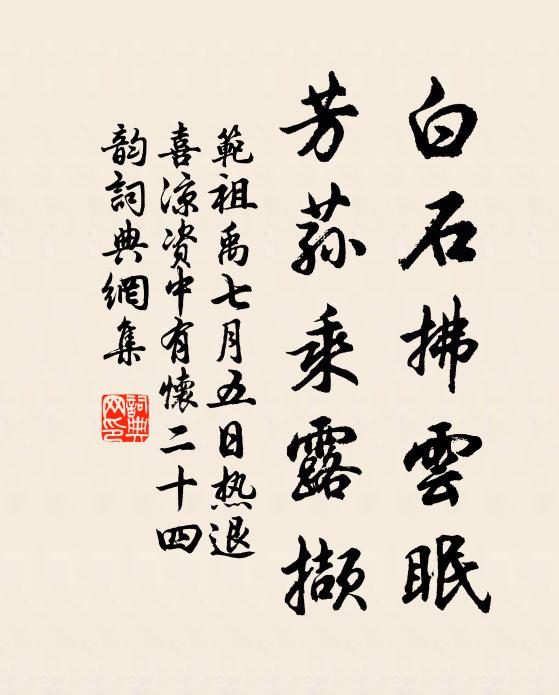 白石拂雲眠
芳蓀乘露擷
範祖禹七月五日热退
喜凉资中有懷二十四
韵詞典網集
詞典网印